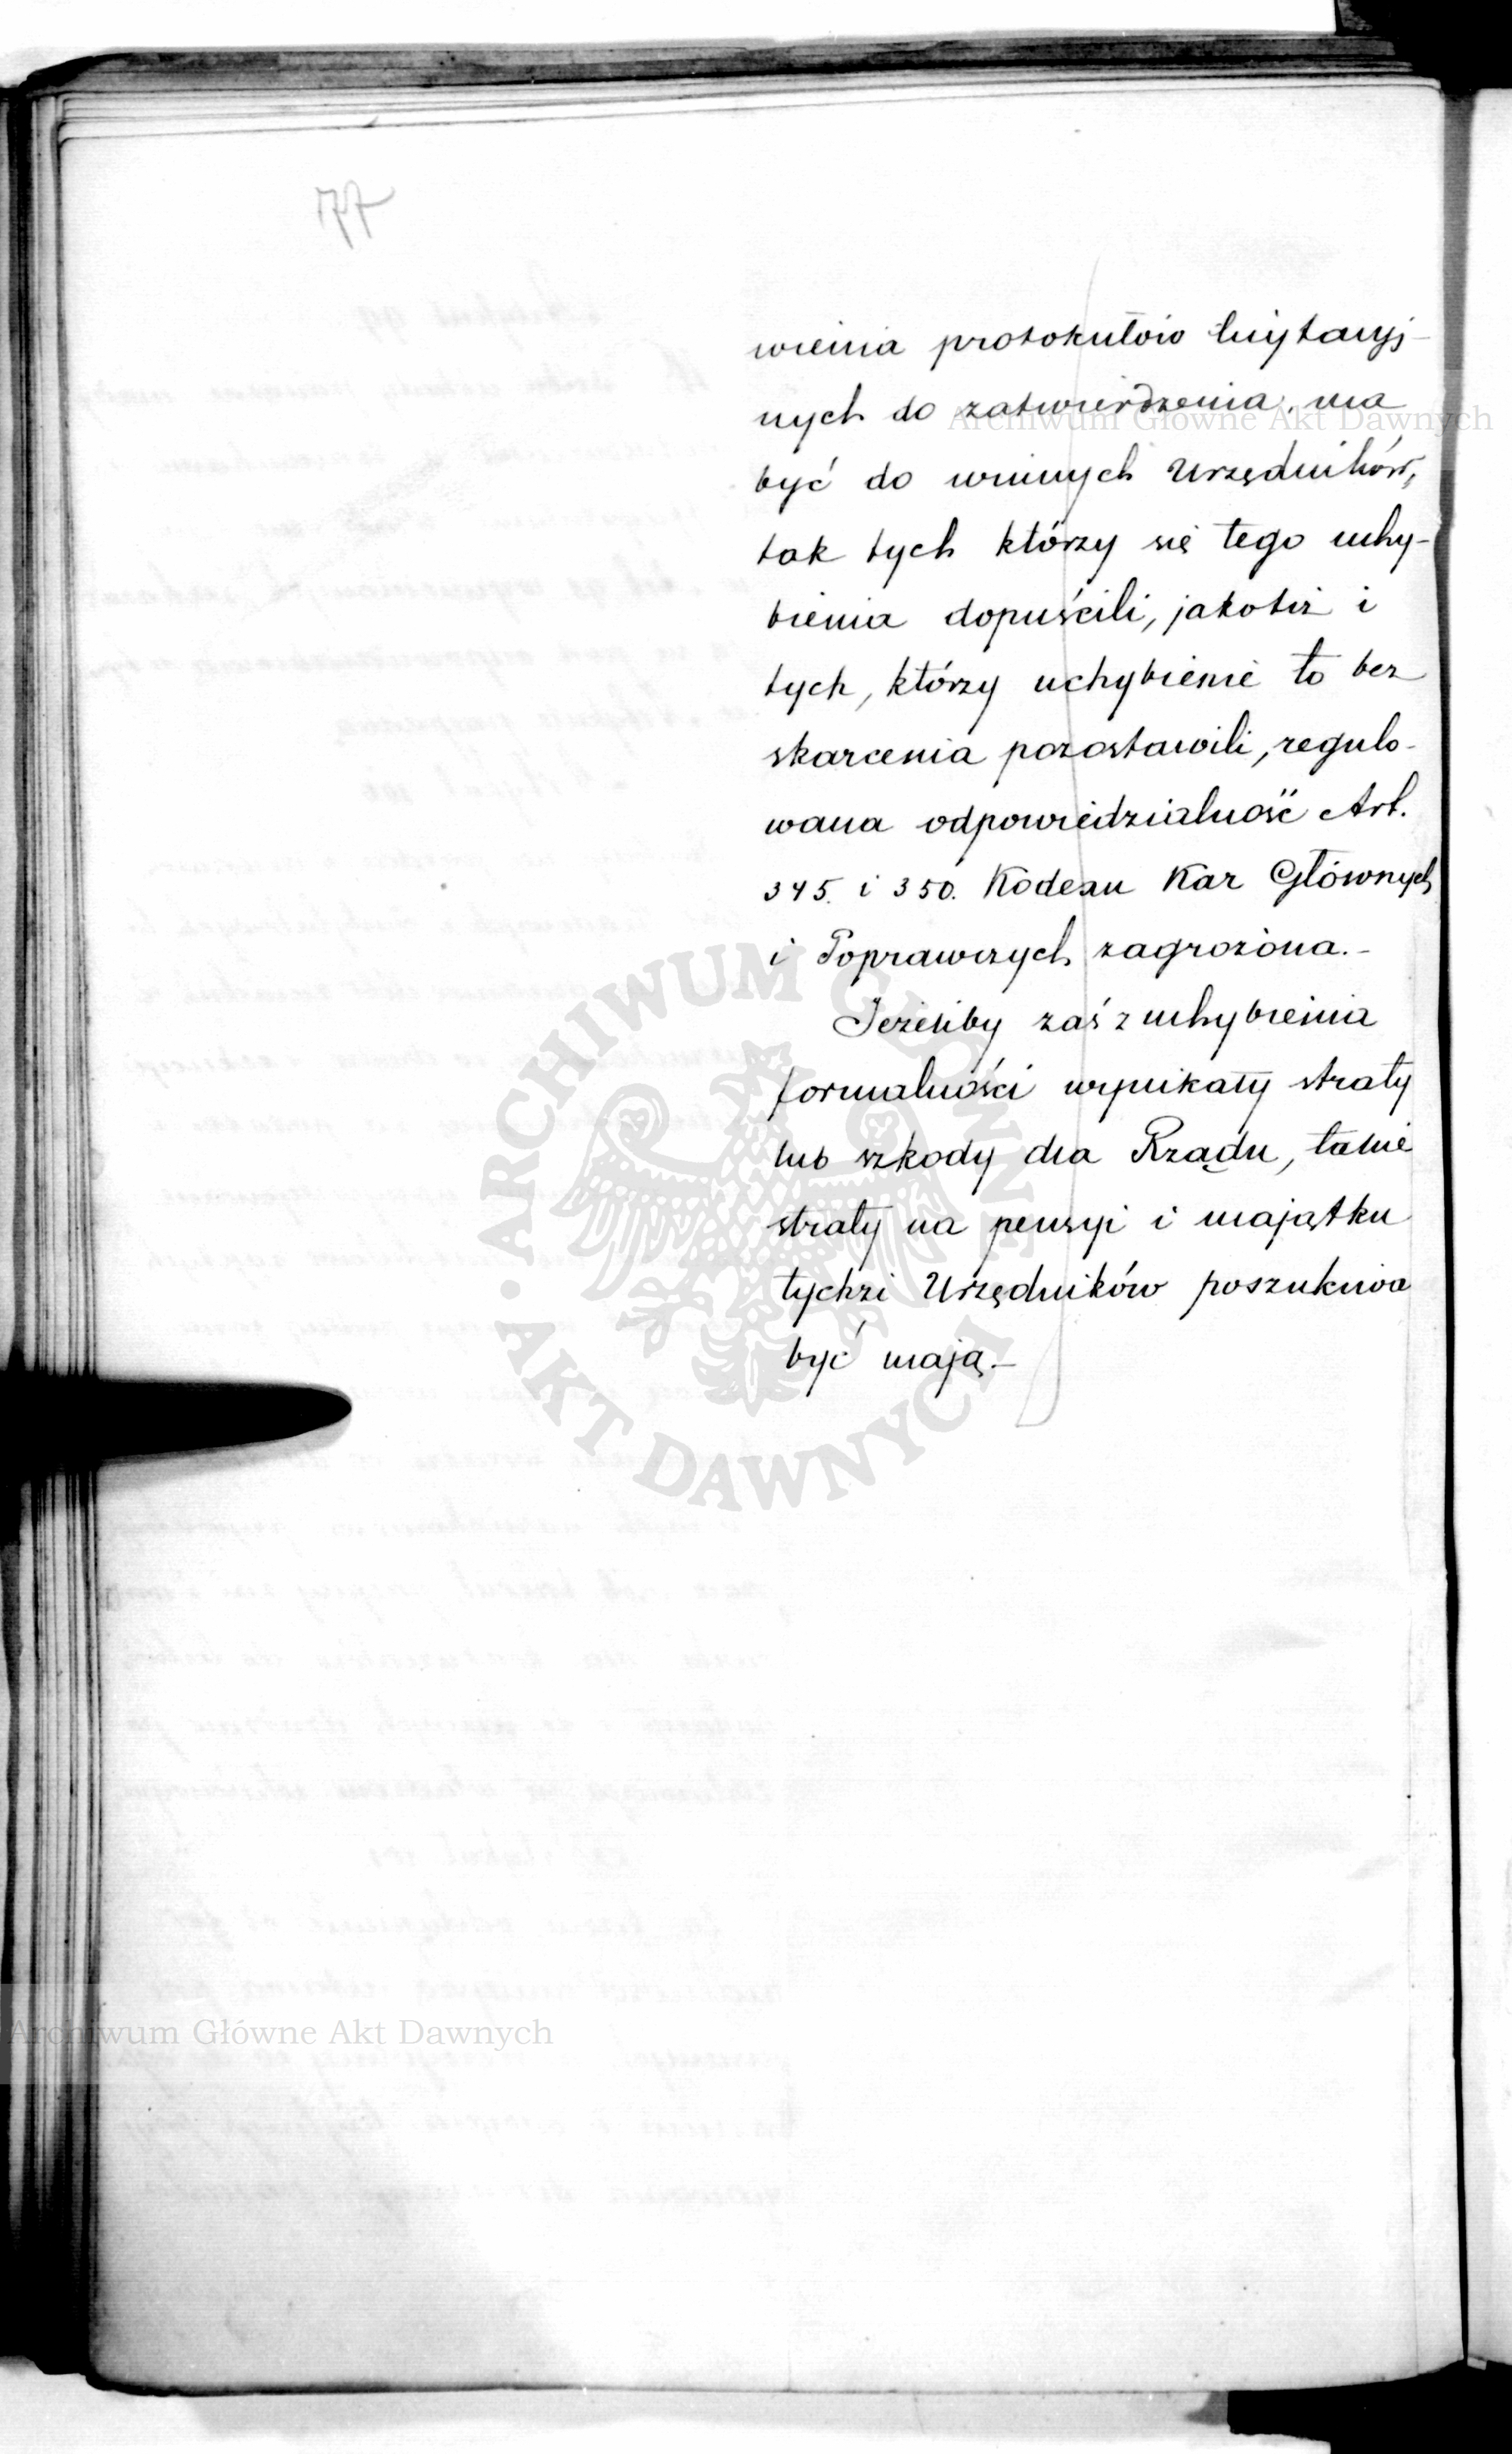 177
wienia protokułów licytacyj-
nych do zatwierdzenia, ma
być do winnych Urzędników,
tak tych którzy się tego uchy-
bienia dopuścili, jakotéż i
tych, którzy uchybienie to bez
skarcenia pozostawili, regulo-
wana odpowiedzialność Art.
345. i 350. Kodexu Kar Głównych
i Poprawczych zagrożona.-
Jeżeliby zaś z uchybienia
formalności wynikały straty
lub szkody dla Rządu, takie
straty na pensyi i majątku
tychże Urzędników poszukiwa
być mają.-
Archiwum Główne Akt Dawnych
ARCHIWUM GŁÓWNE • AKT DAWNYCH
Archiwum Główne Akt Dawnych